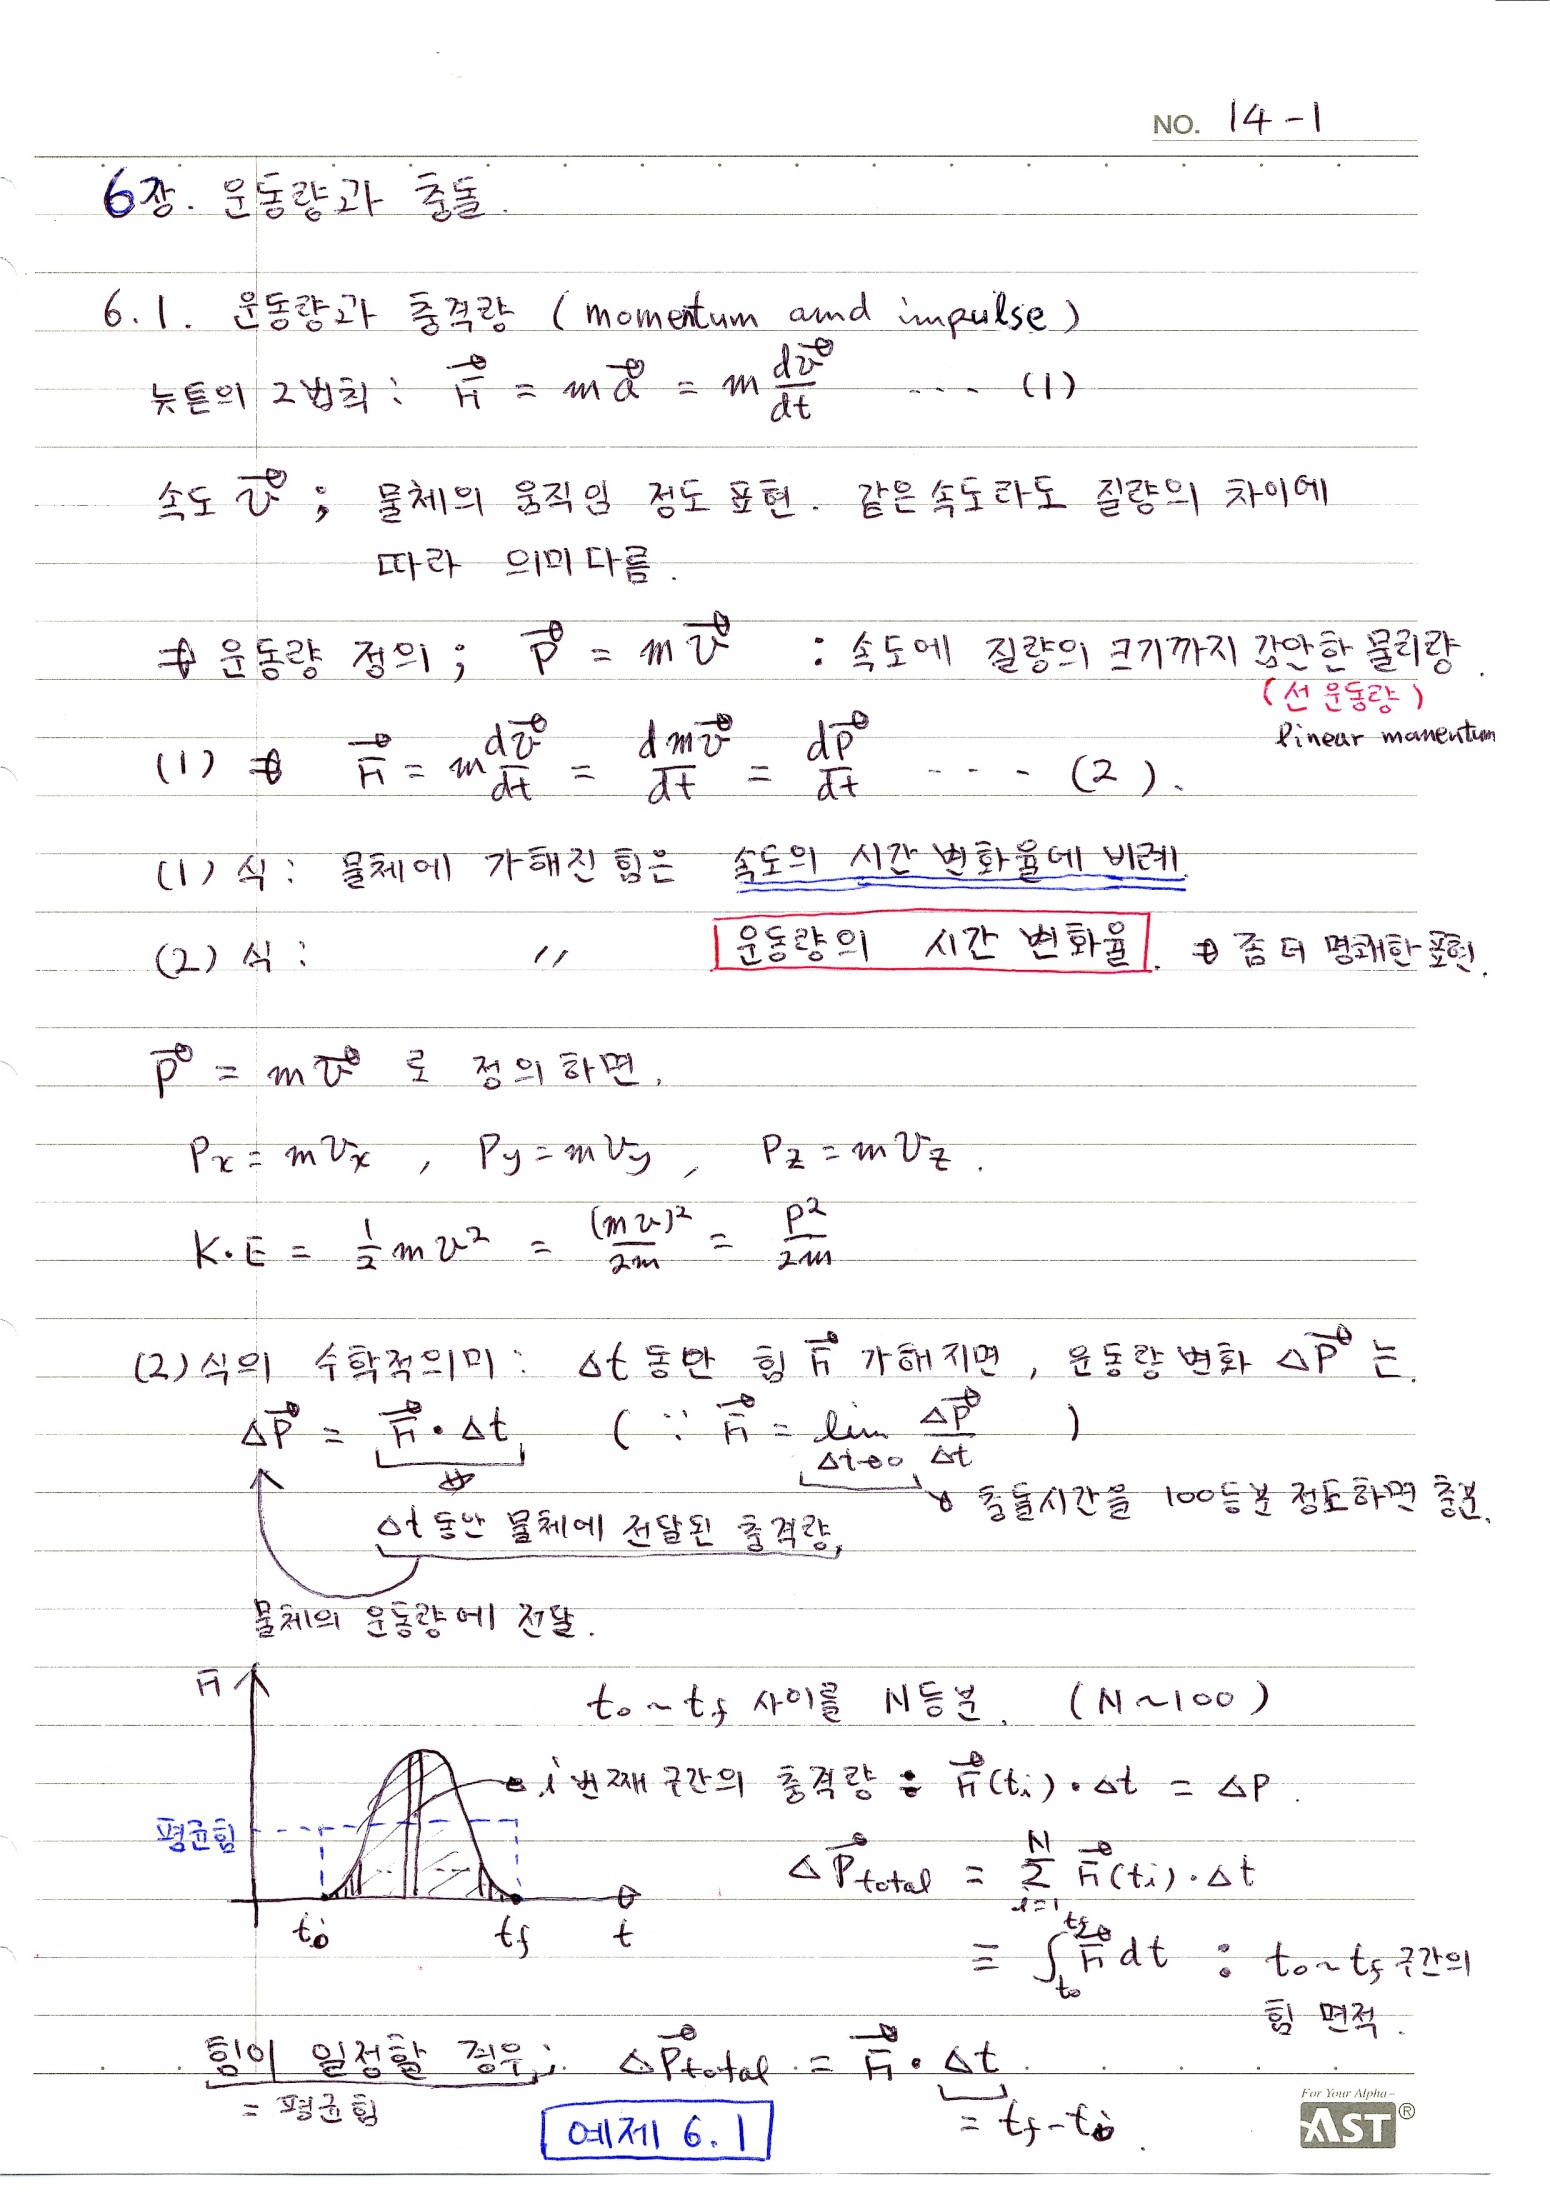 NO. 14-1
6장. 운동량과 충돌.
6.1. 운동량과 충격량 (momentum and impulse)
뉴튼의 2법칙: F⃗ = ma⃗ = m dv⃗/dt ---- (1)
속도 v⃗ ; 물체의 움직임 정도 표현. 같은 속도라도 질량의 차이에
따라 의미 다름.
⇒ 운동량 정의; P⃗ = mv⃗ : 속도에 질량의 크기까지 감안한 물리량.
(선운동량)
linear momentum
(1) ⇒ F⃗ = m dv⃗/dt = dmv⃗/dt = dP⃗/dt ---- (2).
(1)식: 물체에 가해진 힘은 속도의 시간 변화율에 비례.
(2)식: 〃 운동량의 시간 변화율. ⇒ 좀 더 명쾌한 표현.
P⃗ = mv⃗ 로 정의하면,
Px = mvx , Py = mvy , Pz = mvz .
K·E = 1/2 mv² = (mv)²/2m = P²/2m
(2)식의 수학적의미: Δt동안 힘 F⃗ 가해지면, 운동량 변화 ΔP⃗ 는.
ΔP⃗ = F⃗·Δt (∵ F⃗ = lim Δt→0 ΔP⃗/Δt )
→ 충돌시간을 100등분 정도하면 충분.
Δt동안 물체에 전달된 충격량,
물체의 운동량에 전달.
F
t₀ ~ tf 사이를 N등분. (N~100)
→ i 번째 구간의 충격량 : F⃗(ti)·Δt = ΔP.
평균힘
ΔP⃗total = Σ i=1 N F⃗(ti)·Δt
t₀ tf t
≡ ∫ t₀ tf F⃗dt : t₀~tf 구간의
힘 면적.
힘이 일정할 경우; ΔP⃗total = F⃗·Δt
= 평균힘
= tf - t₀.
예제 6.1
For Your Alpha-
AST®